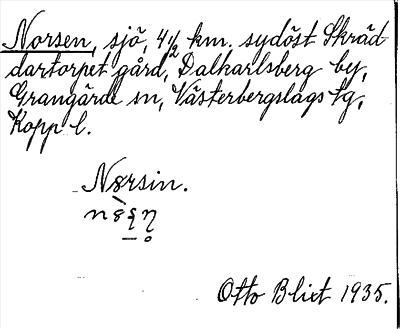 Norsen, sjö, 4 1/2 km. sydöst Skräd-
dartorpet gård, Dalkarlsberg by,
Grangärde sn, Västerbergslags tg,
Kopp l.
Nørsin.
Otto Blixt 1935.